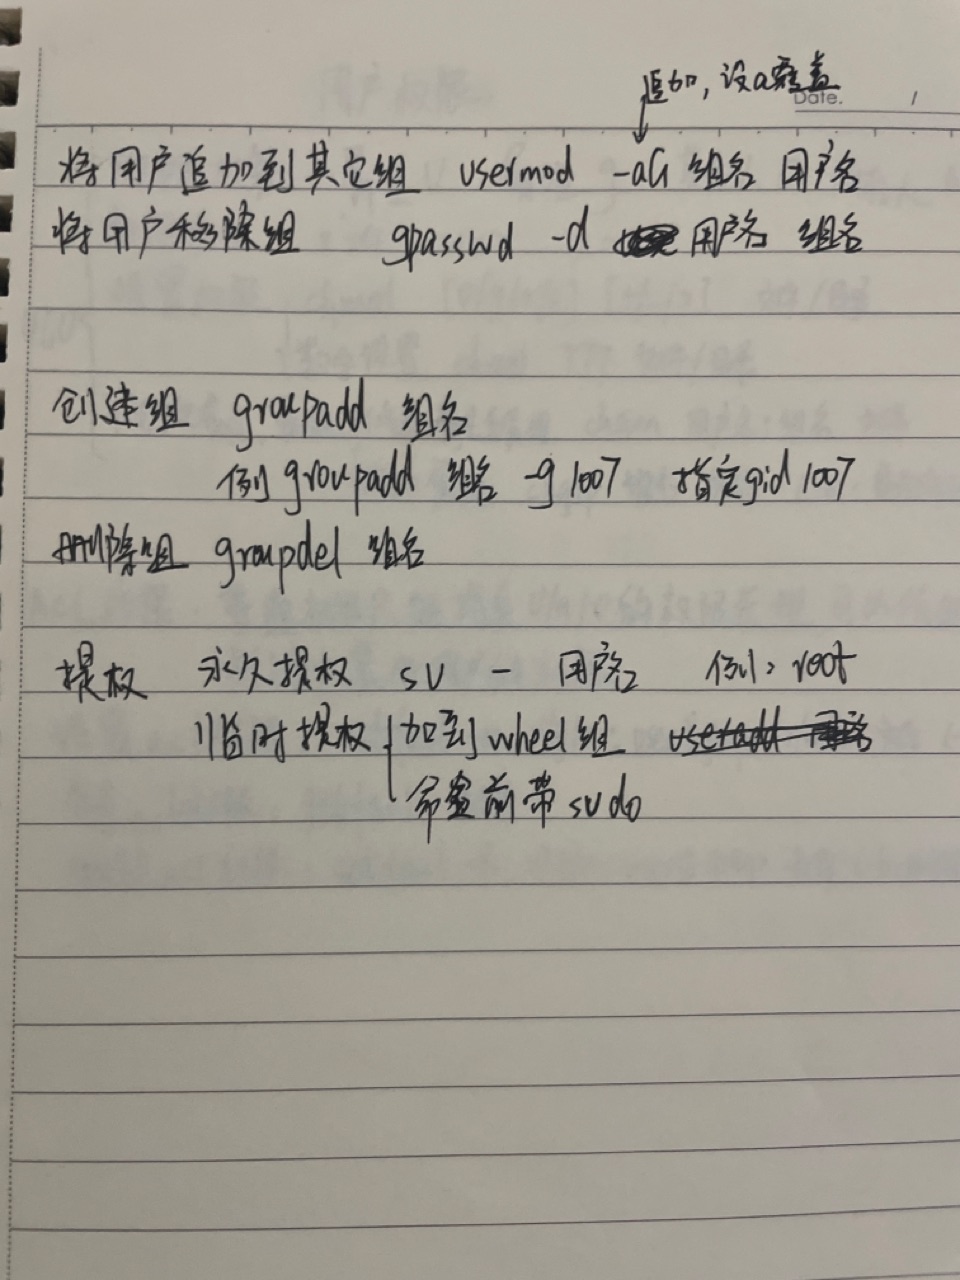 追加，没a覆盖
Date.
将用户追加到其它组 usermod -aG 组名 用户名
将用户移除组 gpasswd -d 用户名 组名
创建组 groupadd 组名
例 groupadd 组名 -g 1007 指定gid 1007
删除组 groupdel 组名
提权 永久提权 su - 用户名 例：root
临时提权 加到wheel组 useradd
命令前带sudo